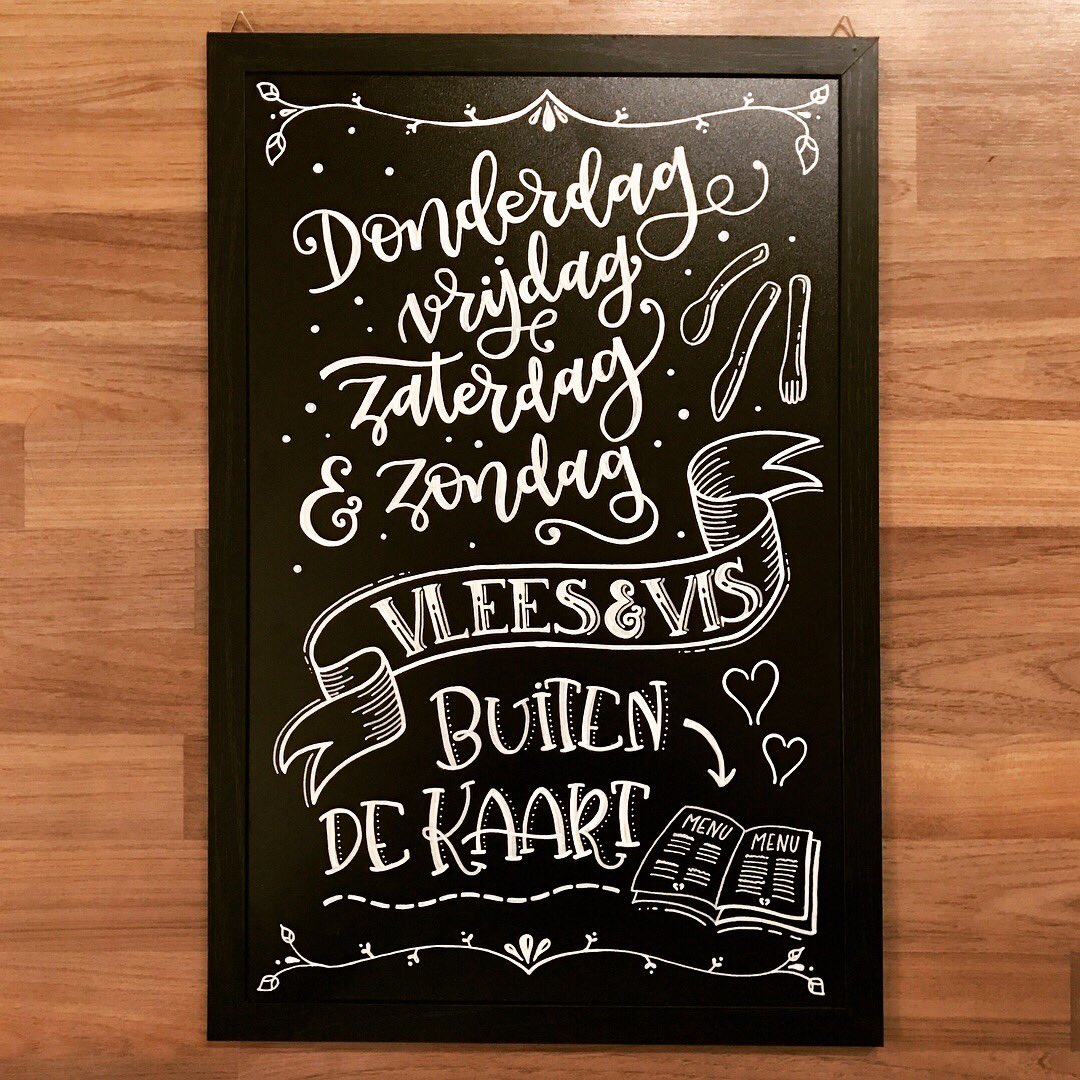 Donderdag
vrijdag
zaterdag
& zondag
VLEES & VIS
BUITEN
DE KAART
MENU MENU